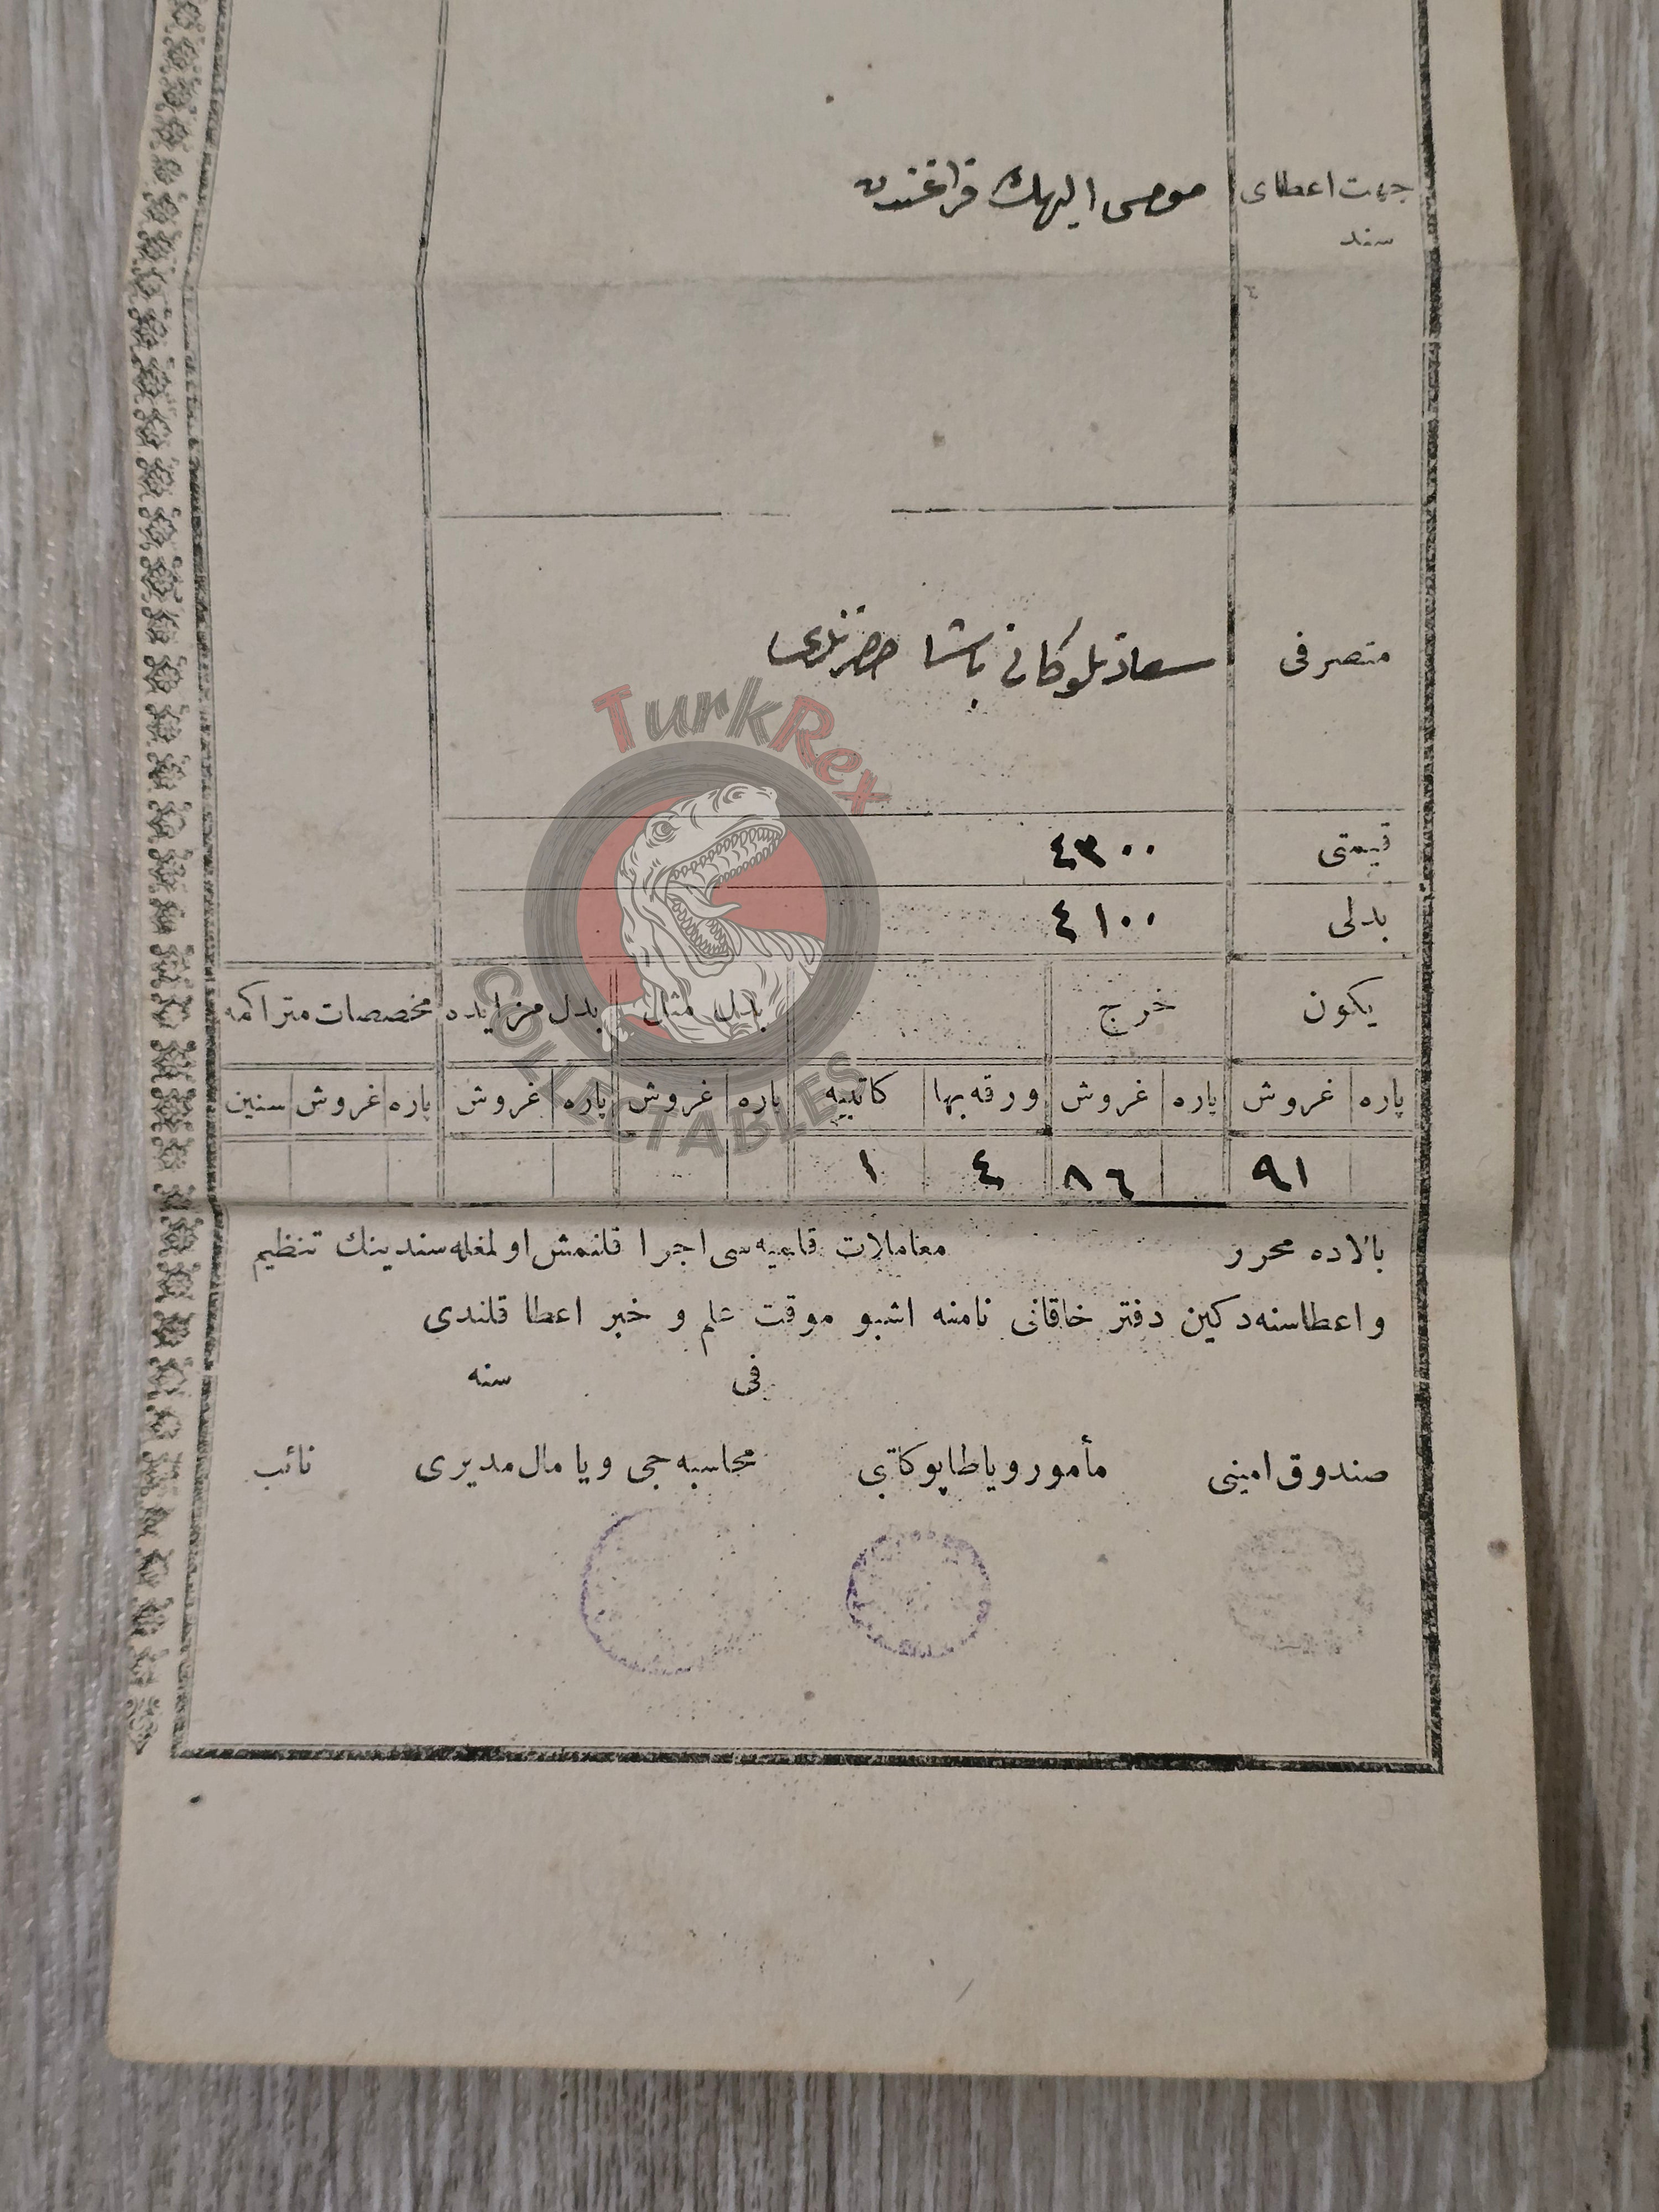 جهت اعطای
سند
مومی الیهك فراغندن
متصرفی
سعادتلو كانی پاشا حضرتلری
قیمتی
٤٣٠٠
بدلی
٤١٠٠
یكون
خرج
بدل مثل
بدل مزایده
مخصصات متراكمه
پاره
غروش
پاره
غروش
ورقه بها
كاتبیه
پاره
غروش
پاره
غروش
پاره
غروش
سنین
٩١
٨٦
٤
١
بالاده محرر معاملات قلمیه سی اجرا قلنمش اولمغله سندینك تنظیم
و اعطاسنه دكین دفتر خاقانی نامنه اشبو موقت علم و خبر اعطا قلندی
فی سنه
صندوق امینی
مأمور ویا طاپو كاتبی
محاسبه جی ویا مال مدیری
نائب
TurkRex
COLLECTABLES